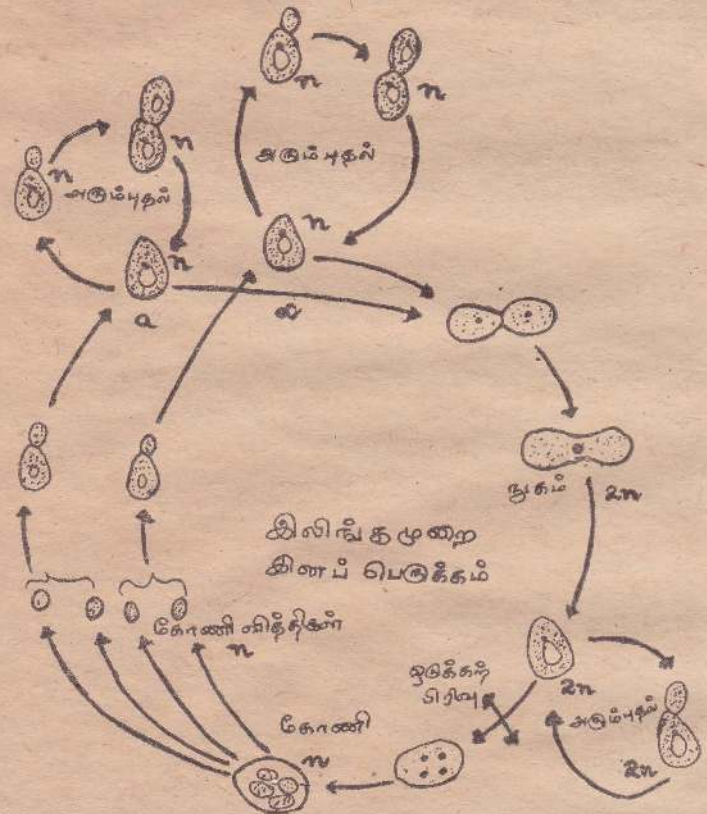 n
n
n
n
அரும்புதல்
அரும்புதல்
n
n
a
α
நுகம் 2n
இலிங்கமுறை
இனப் பெருக்கம்
கோணி வித்திகள்
n
ஒடுக்கற்
பிரிவு
2n
அரும்புதல்
கோணி
n
2n